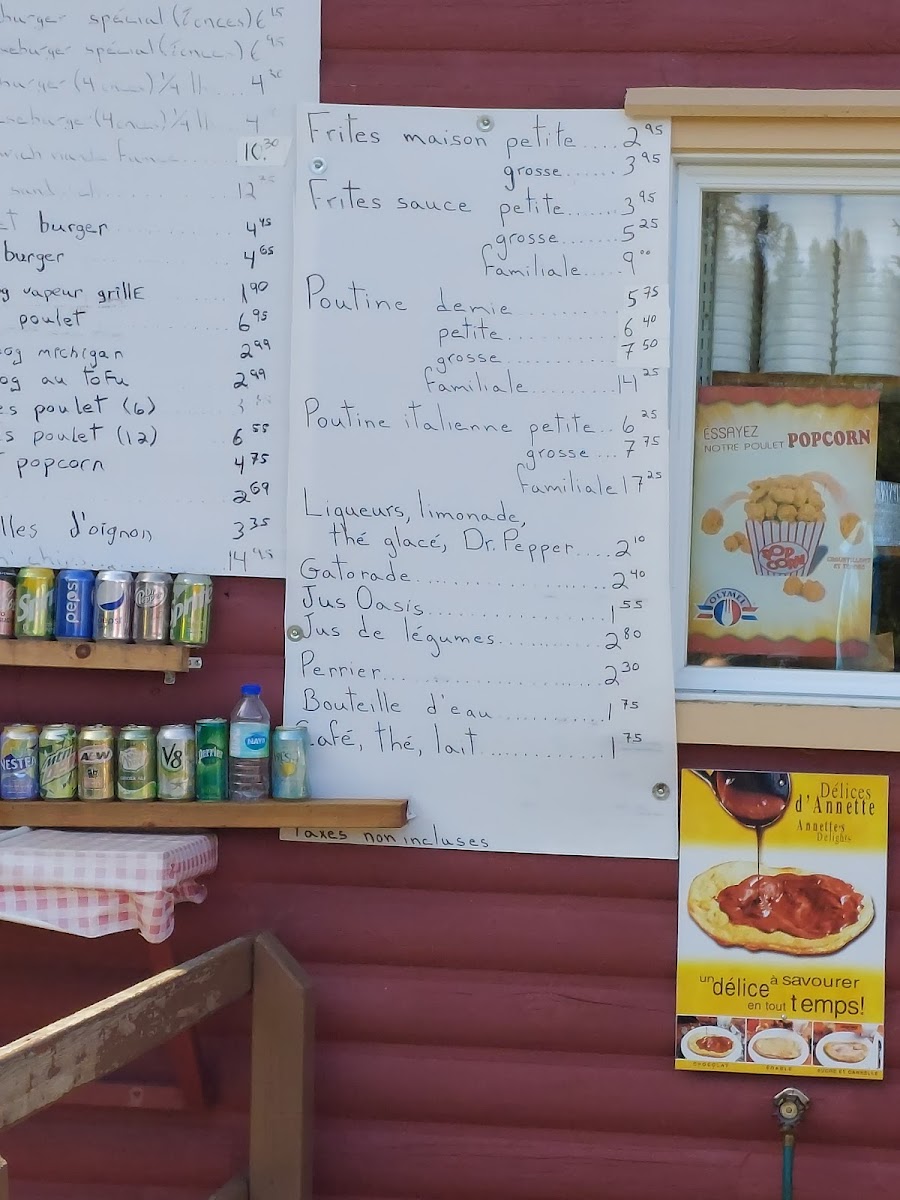 burger spécial (foncés) 6
burger spécial (foncés) 6 95
burger (4 onces) 1/4 4
burger (4 onces) 1/4 4
10.30
12
burger 4 45
burger 4 65
vapeur grillE 1 90
poulet 6 95
og michigan 2 99
og au toFu 2 99
poulet (6)
poulet (12) 6 55
popcorn 4 75
2 69
lles d'oignon 3 35
14 45
Frites maison petite.....2 95
grosse.......3 95
Frites sauce petite.......3 95
grosse.......5 25
familiale.....9 00
Poutine demie 5 75
petite 6 40
grosse 7 50
familiale.........14 25
Poutine italienne petite..6 25
grosse...7 75
familiale 17 25
Liqueurs, limonade,
thé glacé, Dr. Pepper....2 10
Gatorade.....2 40
Jus Oasis.....1 55
Jus de légumes.....2 80
Perrier.....2 30
Bouteille d'eau.....1 75
Café, thé, lait.....1 75
Taxes non incluses
ESSAYEZ
NOTRE POULET POPCORN
POP CORN
CROUSTILLANT
ET TENDRE
OLYMEL
Délices
d'Annette
Annette's
Delights
un délice à savourer
en tout temps!
CHOCOLAT ÉRABLE SUCRE ET CANNELLE
pepsi
NESTEA
A&W
V8
Perrier
NAYA